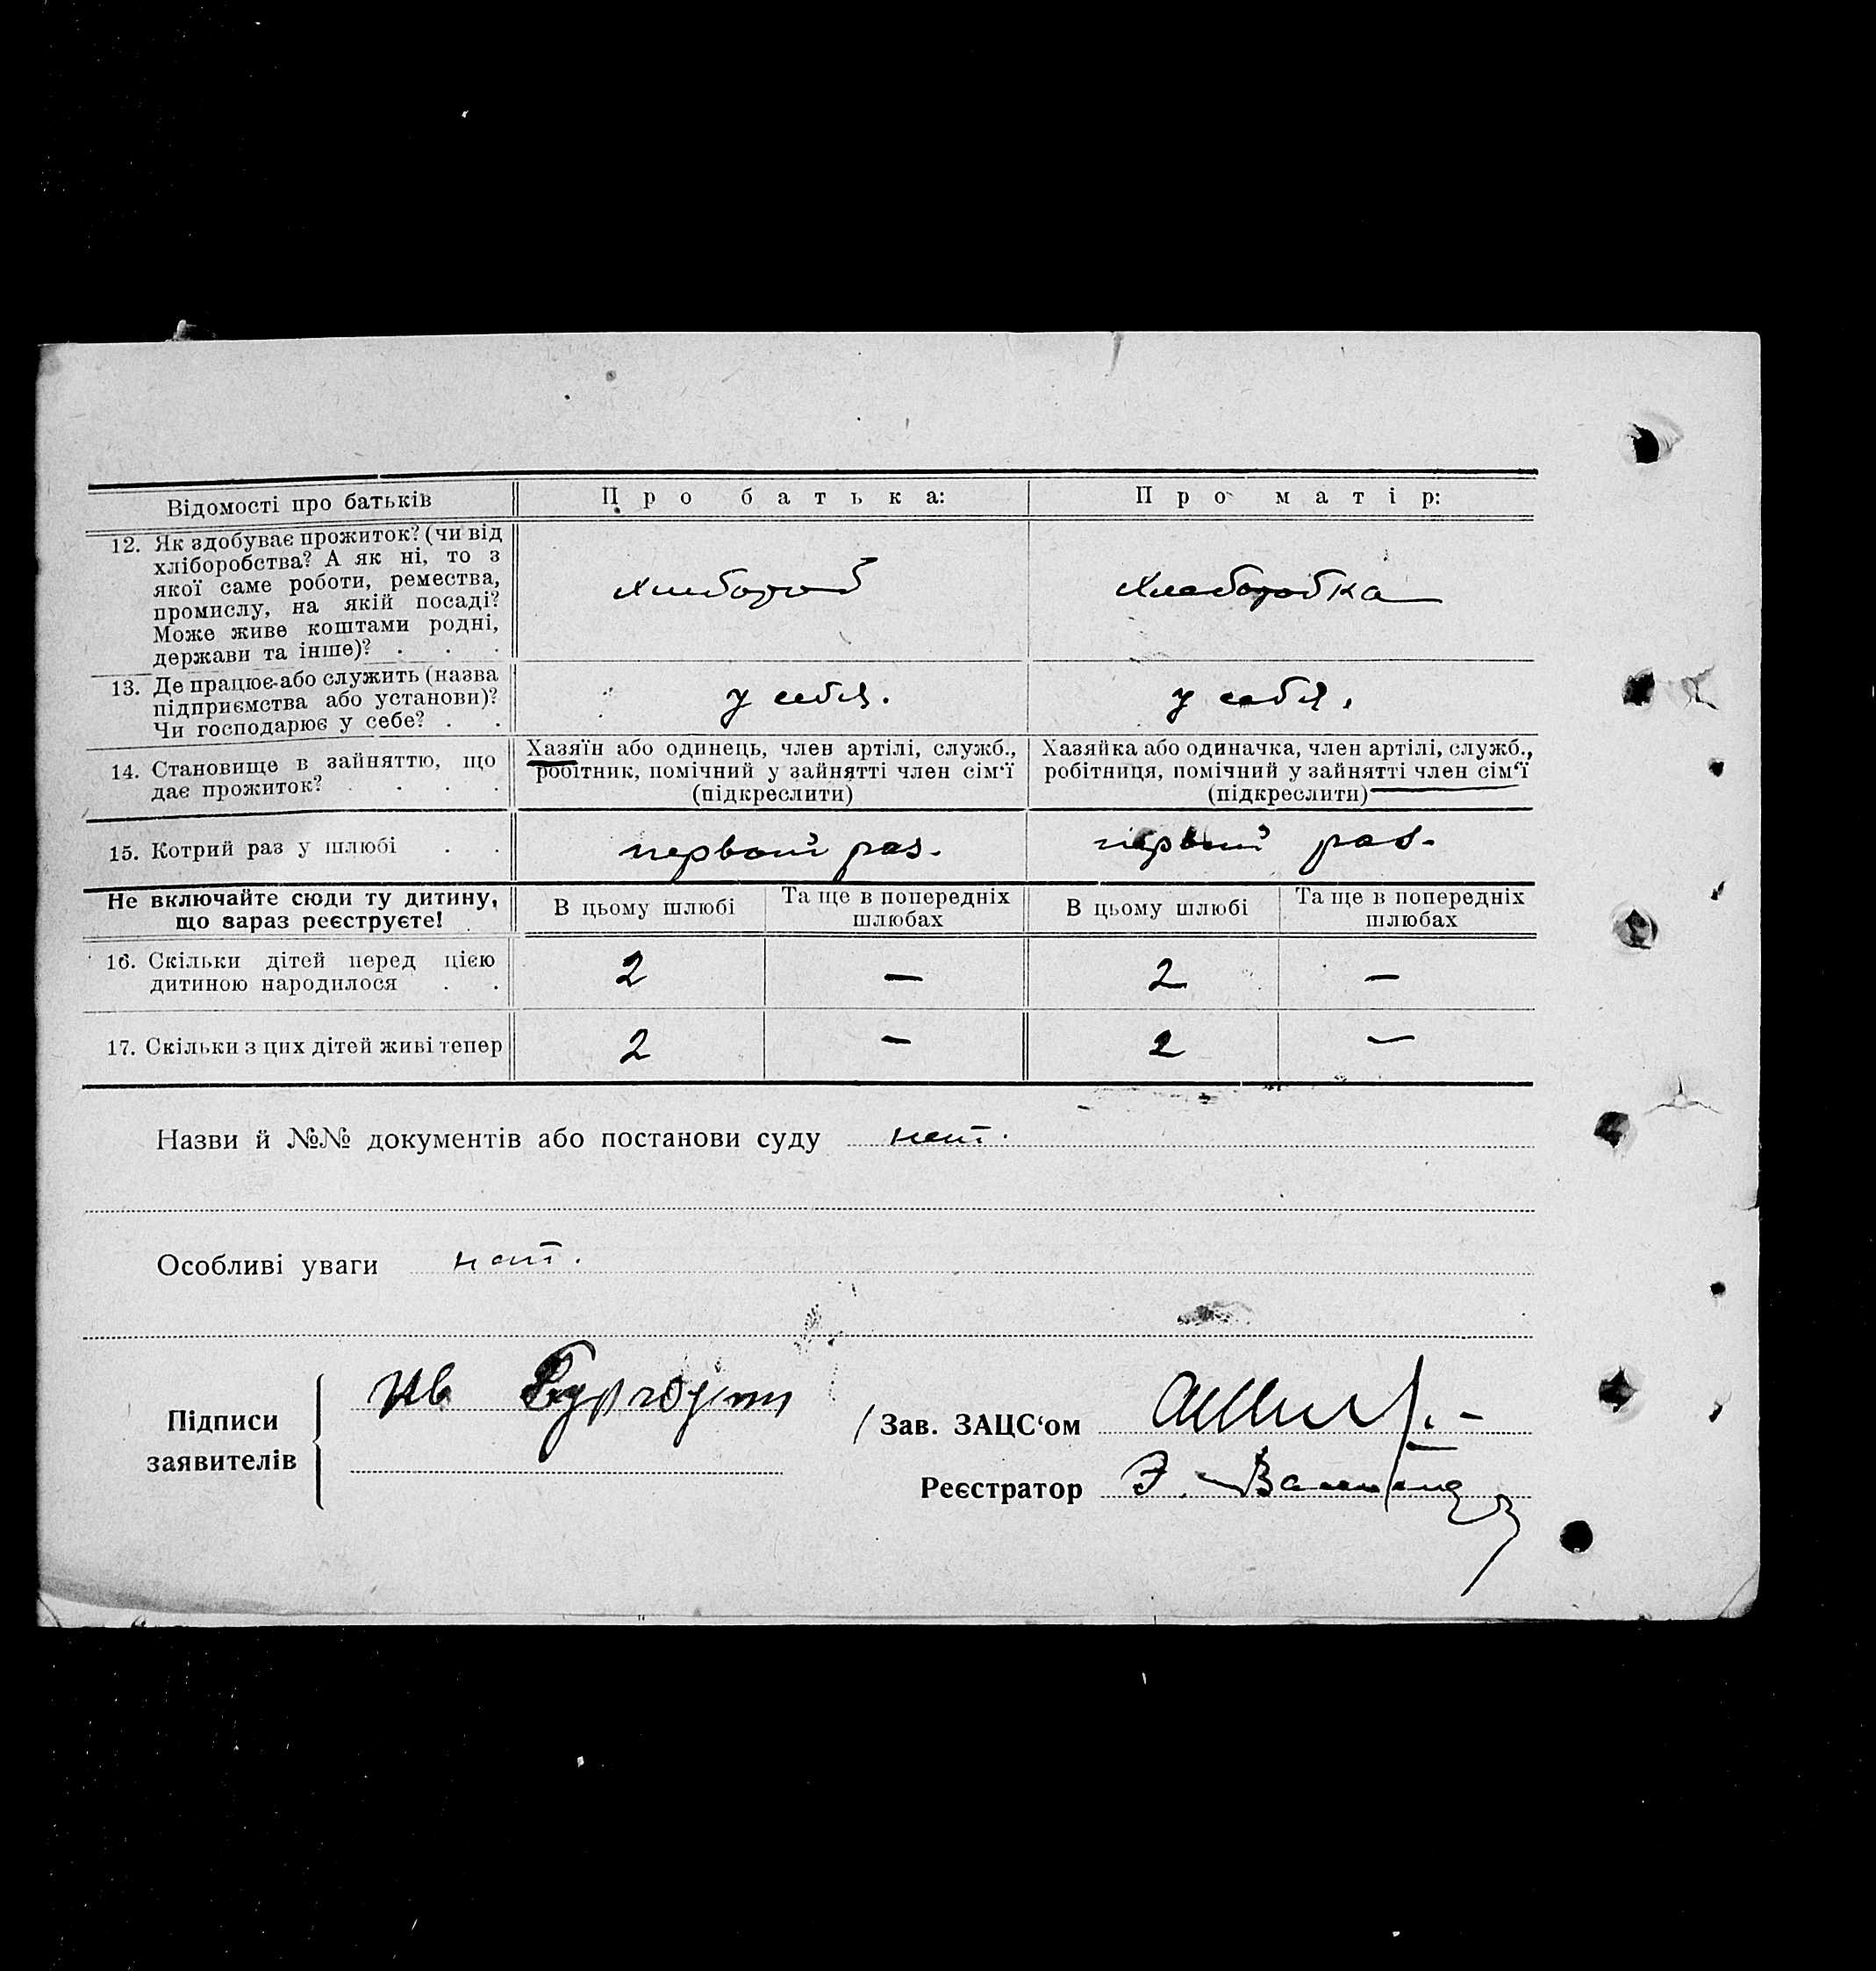 Відомості про батьків
Про батька:
Про матір:
12. Як здобуває прожиток? (чи від
хліборобства? А як ні, то з
якої саме роботи, ремества,
промислу, на якій посаді?
Може живе коштами родні,
держави та інше)? . . .
хлебороб
Хлеборобка
13. Де працює або служить (назва
підприємства або установи)?
Чи господарює у себе? . .
у себя.
у себя.
14. Становище в зайняттю, що
дає прожиток? . . . .
Хазяїн або одинець, член артілі, служб.,
робітник, помічний у зайнятті член сім'ї
(підкреслити)
Хазяйка або одиначка, член артілі, служб.,
робітниця, помічний у зайнятті член сім'ї
(підкреслити)
15. Котрий раз у шлюбі . .
первый раз.
первый раз.
Не включайте сюди ту дитину,
що зараз реєструєте!
В цьому шлюбі
Та ще в попередніх
шлюбах
В цьому шлюбі
Та ще в попередніх
шлюбах
16. Скільки дітей перед цією
дитиною народилося . .
2 — 2 —
17. Скільки з цих дітей живі тепер
2 — 2 —
Назви й №№ документів або постанови суду нет.
Особливі уваги нет.
Підписи
заявителів
Зав. ЗАЦС'ом
Реєстратор Э.